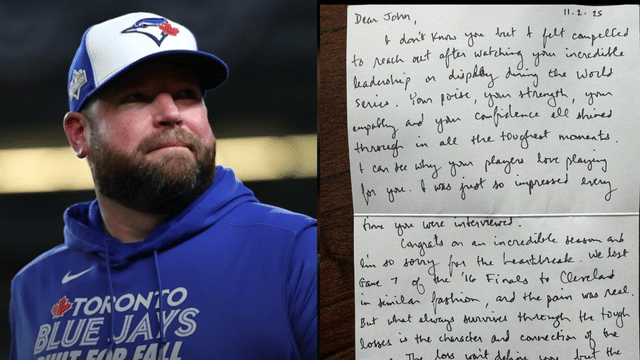 TORONTO
BLUE JAYS
BUILT FOR FALL
11.2.25
Dear John,
I don't know you but I felt compelled
to reach out after watching your incredible
leadership on display during the World
Series. Your poise, your strength, your
empathy and your confidence all shined
through in all the toughest moments.
I can see why your players love playing
for you. I was just so impressed every
time you were interviewed.
Congrats on an incredible season and
I'm so sorry for the heartbreak. We lost
Game 7 of the '16 Finals to Cleveland
in similar fashion, and the pain was real.
But what always survives through the tough
losses is the character and connection of the
The loss won't define your but the